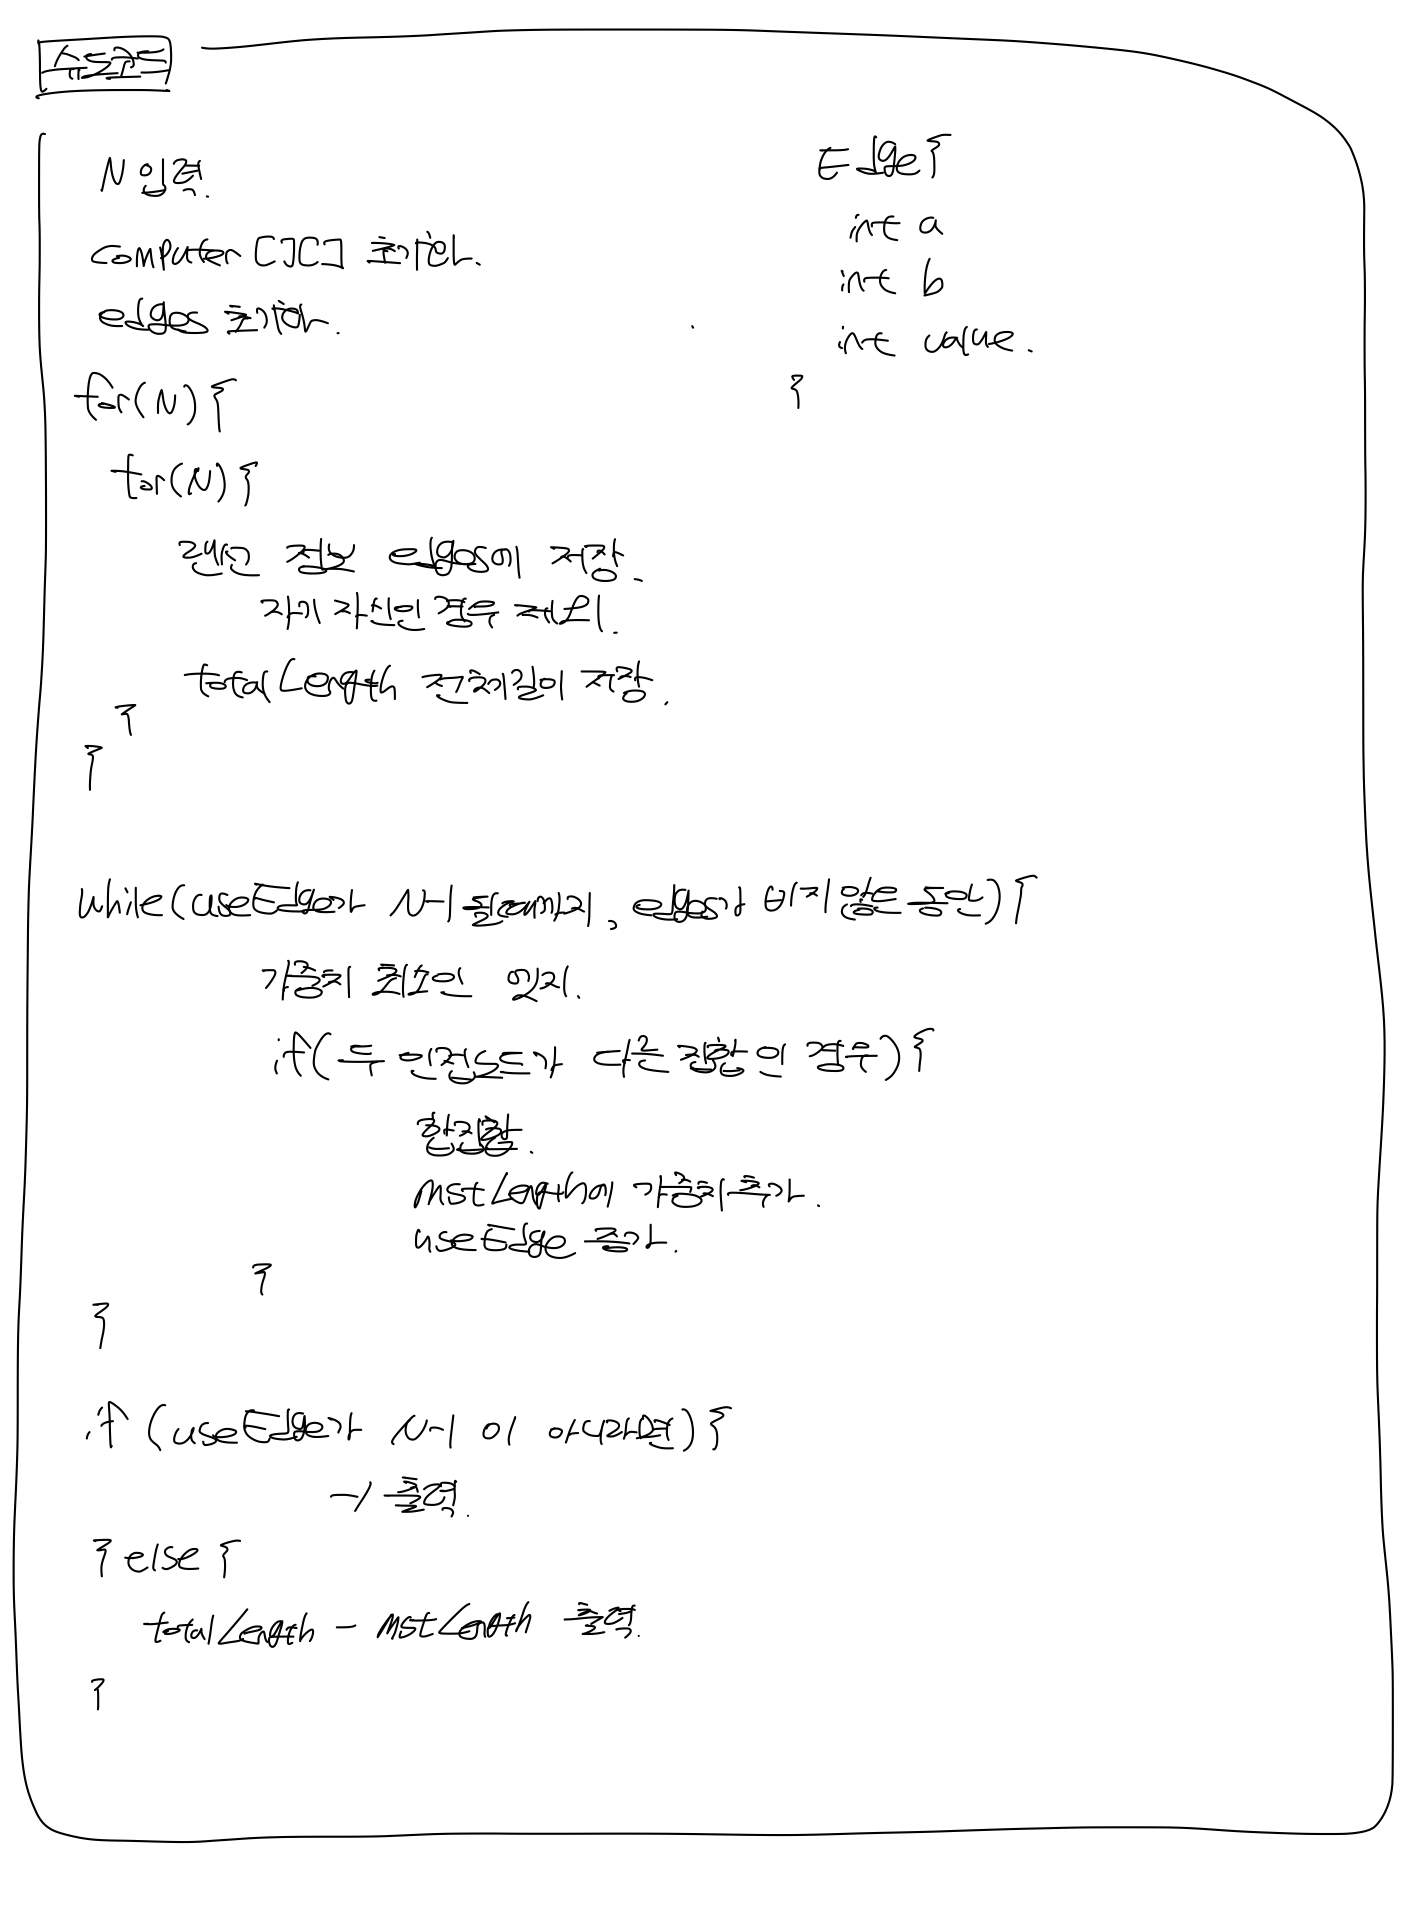 슈도코드
N 입력.
computer [][] 초기화.
edges 초기화.
for(N){
for(N){
랜선 정보 edges에 저장.
자기 자신인 경우 제외.
totalLength 전체길이 저장.
}
}
while(useEdge가 N-1 될때까지, edges가 비지 않은 동안){
가중치 최소인 엣지.
if(두 인접노드가 다른 집합인 경우){
합집합.
mstLength에 가중치 추가.
useEdge 증가.
}
}
if (useEdge가 N-1 이 아니라면){
-1 출력.
} else {
totalLength - mstLength 출력.
}
Edge{
int a
int b
int value.
}